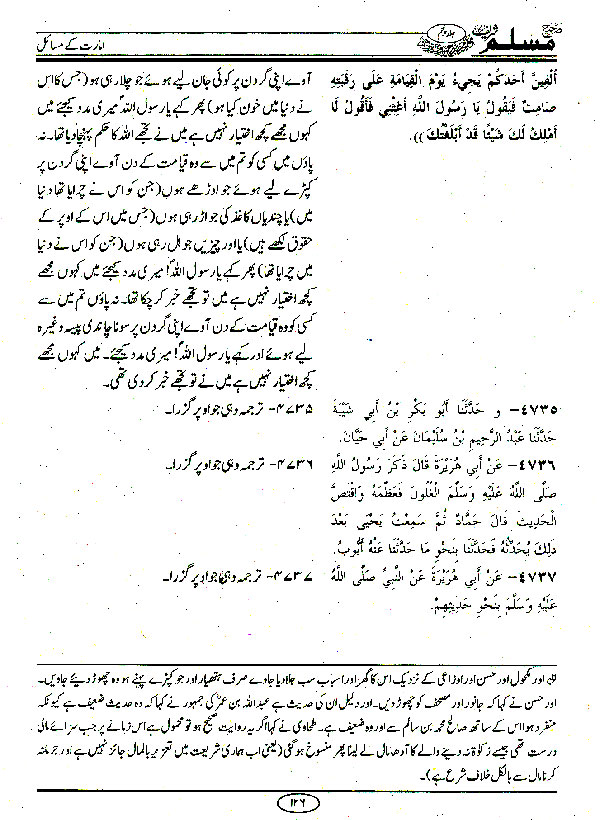 صحیح مسلم شریف جلد پنجم
امارت کے مسائل
أُلْفِيَنَّ أَحَدَكُمْ يَجِيءُ يَوْمَ الْقِيَامَةِ عَلَى رَقَبَتِهِ
صَامِتٌ فَيَقُولُ يَا رَسُولَ اللَّهِ أَغِثْنِي فَأَقُولُ لَا
أَمْلِكُ لَكَ شَيْئًا قَدْ أَبْلَغْتُكَ )).
آوے اپنی گردن پر کوئی جان لیے ہوئے جو چلا رہی ہو (جس کا اس
نے دنیا میں خون کیا ہو) پھر کہے یا رسول اللہ! میری مدد کیجئے میں
کہوں مجھے کچھ اختیار نہیں ہے میں نے تجھے اللہ کا حکم پہنچا دیا تھا۔ نہ
پاؤں میں کسی کو تم میں سے وہ قیامت کے دن آوے اپنی گردن پر
کپڑے لیے ہوئے جو اوڑھے ہوں (جن کو اس نے چرایا تھا دنیا
میں) یا چندیاں کاغذ کی جو اڑ رہی ہوں (جس میں اس کے اوپر کے
حقوق لکھے ہیں) یا اور چیزیں جو ہل رہی ہوں (جن کو اس نے دنیا
میں چرایا تھا) پھر کہے یا رسول اللہ! میری مدد کیجئے میں کہوں مجھے
کچھ اختیار نہیں ہے میں تو تجھے خبر کر چکا تھا۔ نہ پاؤں تم میں سے
کسی کو وہ قیامت کے دن آوے اپنی گردن پر سونا چاندی پیسہ وغیرہ
لیے ہوئے اور کہے یا رسول اللہ! میری مدد کیجئے۔ میں کہوں مجھے
کچھ اختیار نہیں ہے میں نے تو تجھے خبر کر دی تھی۔
٤٧٣٥- و حَدَّثَنَا أَبُو بَكْرِ بْنُ أَبِي شَيْبَةَ
حَدَّثَنَا عَبْدُ الرَّحِيمِ بْنُ سُلَيْمَانَ عَنْ أَبِي حَيَّانَ.
۴۷۳۵- ترجمہ وہی جو اوپر گزرا۔
٤٧٣٦- عَنْ أَبِي هُرَيْرَةَ قَالَ ذَكَرَ رَسُولُ اللَّهِ
صَلَّى اللَّهُ عَلَيْهِ وَسَلَّمَ الْغُلُولَ فَعَظَّمَهُ وَاقْتَصَّ
الْحَدِيثَ قَالَ حَمَّادٌ ثُمَّ سَمِعْتُ يَحْيَى بَعْدَ
ذَلِكَ يُحَدِّثُهُ فَحَدَّثَنَا بِنَحْوِ مَا حَدَّثَنَا عَنْهُ أَيُّوبُ.
۴۷۳۶- ترجمہ وہی جو اوپر گزرا۔
٤٧٣٧- عَنْ أَبِي هُرَيْرَةَ عَنِ النَّبِيِّ صَلَّى اللَّهُ
عَلَيْهِ وَسَلَّمَ بِنَحْوِ حَدِيثِهِمْ.
۴۷۳۷- ترجمہ وہی جو اوپر گزرا۔
اور مکحول اور حسن اور اوزاعی کے نزدیک اس کا گھر اور اسباب سب جلا دیا جاوے صرف ہتھیار اور جو کپڑے پہنے ہو وہ چھوڑ دیئے جاویں۔
اور حسن نے کہا کہ جانور اور مصحف کو چھوڑ دیں۔ اور دلیل ان کی حدیث ہے عبداللہ بن عمر کی جمہور نے کہا کہ وہ حدیث ضعیف ہے کیونکہ
منفرد ہوا اس کے ساتھ صالح محمد بن سالم سے اور وہ ضعیف ہے۔ طحاوی نے کہا اگر یہ روایت صحیح ہو تو محمول ہے اس زمانے پر جب سزائے مالی
درست تھی جیسے زکوٰۃ نہ دینے والے کا آدھا مال لے لینا پھر منسوخ ہو گئی (یعنی اب ہماری شریعت میں تعزیر بالمال جائز نہیں ہے اور جرمانہ
کرنا مال سے بالکل خلاف شرع ہے)۔
۱۲۶